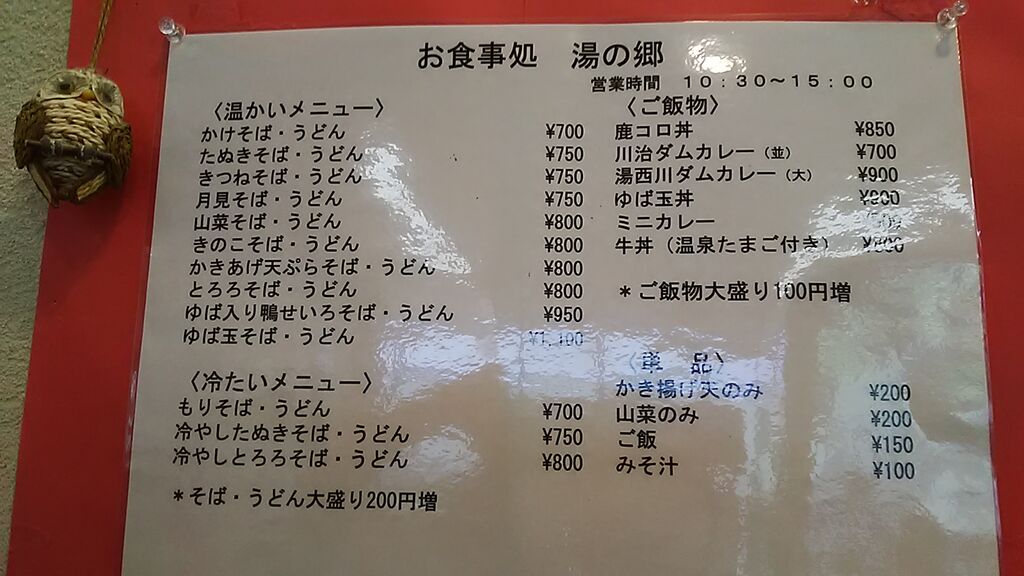 お食事処 湯の郷
営業時間 10:30～15:00
〈温かいメニュー〉
かけそば・うどん ¥700
たぬきそば・うどん ¥750
きつねそば・うどん ¥750
月見そば・うどん ¥750
山菜そば・うどん ¥800
きのこそば・うどん ¥800
かきあげ天ぷらそば・うどん ¥800
とろろそば・うどん ¥800
ゆば入り鴨せいろそば・うどん ¥950
ゆば玉そば・うどん ¥1,100
〈冷たいメニュー〉
もりそば・うどん ¥700
冷やしたぬきそば・うどん ¥750
冷やしとろろそば・うどん ¥800
＊そば・うどん大盛り200円増
〈ご飯物〉
鹿コロ丼 ¥850
川治ダムカレー（並） ¥700
湯西川ダムカレー（大） ¥900
ゆば玉丼
ミニカレー
牛丼（温泉たまご付き）
＊ご飯物大盛り100円増
〈単 品〉
かき揚げ天のみ ¥200
山菜のみ ¥200
ご飯 ¥150
みそ汁 ¥100